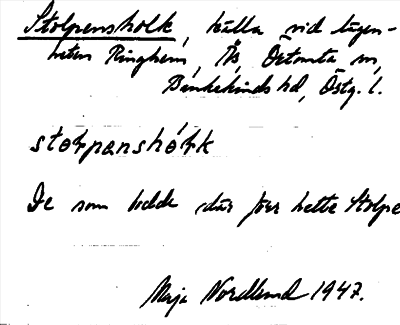 Stolpensholk, källa vid lägen-
heten Ringhem, Ås, Östomta m,
Bankekinds hd, Östg. l.
stolpanshólk
De som bodde där förr hette Stolpe
Maja Nordlund 1947.